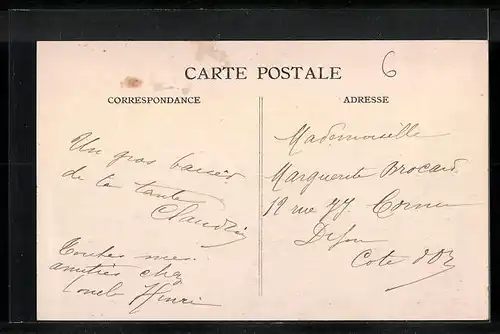 CARTE POSTALE
6
CORRESPONDANCE
ADRESSE
Un gros baiser
de ta tante
Claudia
Toutes mes
amitiés chez
l'oncle Henri
Mademoiselle
Marguerite Brocard
12 rue JJ. Cornu
Dijon
Cote d'Or